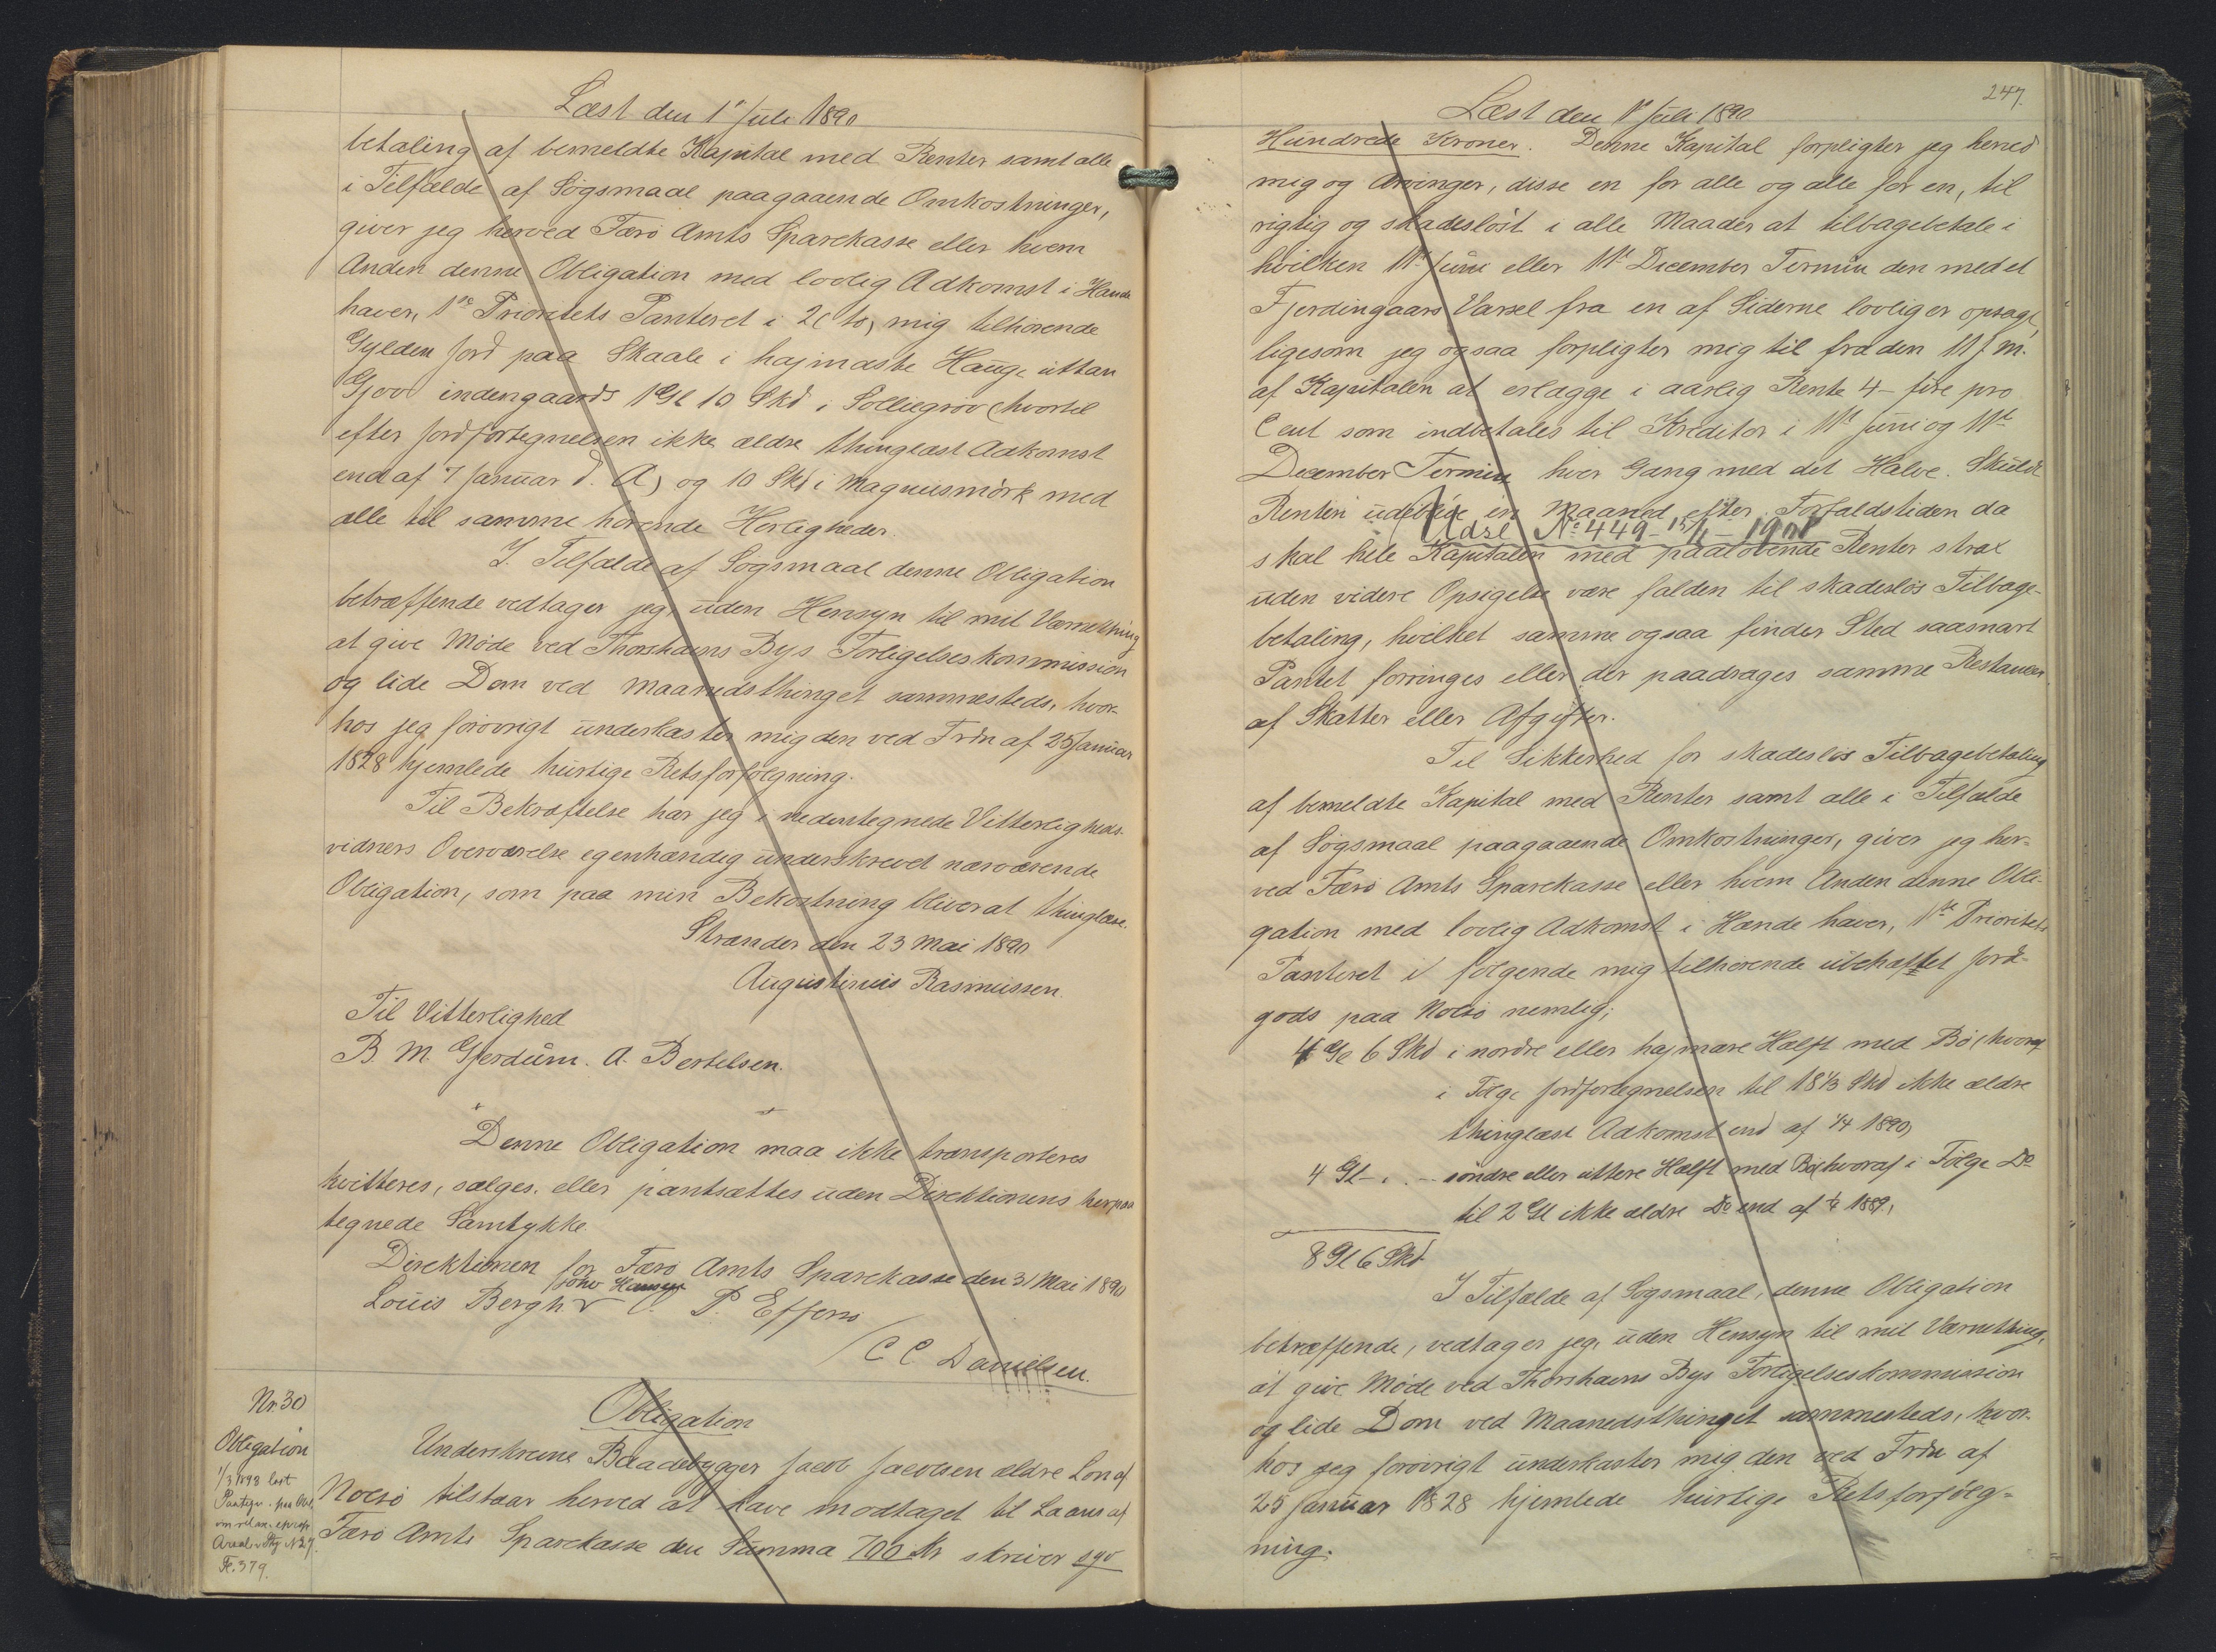 Læst den 1e Juli 1890
betaling af bemeldte Kapital med Renter samt alle
i Tilfælde af Søgsmaal paagaaende Omkostninger,
giver jeg herved Færø Amts Sparekasse eller hvem
Anden denne Obligation med lovlig Adkomst i Hænde
haver, 1ste Prioritets Panteret i 2 (to) mig tilhørende
Gylden Jord paa Skaale i hajmaste Hauge uttan
Gjov indengaards 1 Gl 10 Skd i Solliegrov (hvortil
efter Jordfortegnelsen ikke ældre thinglæst Adkomst
end af 7 Januar d. A) og 10 Skd i Magnusmørk med
alle til samme hørende Herligheder.
I Tilfælde af Søgsmaal denne Obligation
betræffende vedtager jeg, uden Hensyn til mit Værnething
at give Møde ved Thorshavns Bys Forligelseskommission
og lide Dom ved Maanedsthinget sammesteds, hvor-
hos jeg forøvrigt underkaster mig den ved Frdn af 25 Januar
1828 hjemlede hurtige Retsforfølgning.
Til Bekræftelse har jeg i nedentegnede Vitterligheds-
vidners Overværelse egenhændig underskrevet nærværende
Obligation, som paa min Bekostning bliver at thinglæse.
Strænder den 23 Mai 1890
Augustinus Rasmussen.
Til Vitterlighed
B. M. Gjerdum. A. Bertelsen.
Denne Obligation maa ikke transporteres
kvitteres, sælges, eller pantsættes uden Direktionens herpaa
tegnede Samtykke.
Direktionen for Færø Amts Sparekasse den 31 Mai 1890
Louis Bergh Johs Hansen P. Effersø
C C Danielsen.
Nr. 30
Obligation
1/3 1898 læst
Paategn. paa Obl.
Areal
Fo. 379.
Obligation
Underskrevne Baadebygger Jacob Jacobsen ældre Søn af
Nolsø tilstaar herved at have modtaget til Laans af
Færø Amts Sparekasse den Summa 700 Kr skriver syv
247.
Læst den 1e Juli 1890
Hundrede Kroner. Denne Kapital forpligter jeg herved
mig og Arvinger, disse en for alle og alle for en, til
rigtig og skadesløst i alle Maader at tilbagebetale i
hvilken 11te Juni eller 11te December Termin den med et
Fjerdingaars Varsel fra en af Siderne lovlig er opsagt,
ligesom jeg ogsaa forpligter mig til fra den 11 J. M.
af Kapitalen at erlægge i aarlig Rente 4 - fire pro
Cent som indbetales til Kreditor i 11te Juni og 11te
December Termin hver Gang med det Halve. Skulde
Renten udeblive en Maaned efter Forfaldstiden da
Udsl No 449 - 15/1 - 1901
skal hele Kapitalen med paaløbende Renter strax
uden videre Opsigelse være falden til skadesløs Tilbage-
betaling, hvilket samme ogsaa finder Sted saasnart
Pantet forringes eller der paadrages samme Restancer
af Skatter eller Afgifter.
Til Sikkerhed for skadesløs Tilbagebetaling
af bemeldte Kapital med Renter samt alle i Tilfælde
af Søgsmaal paagaaende Omkostninger, giver jeg her-
ved Færø Amts Sparekasse eller hvem Anden denne Obli-
gation med lovlig Adkomst i Hænde haver, 1ste Prioritets
Panteret i følgende mig tilhørende ubehæftet Jord-
gods paa Nolsø nemlig;
4 Gl 6 Skd i nordre eller hajmare Hælft med Bø (hvoraf
i Følge Jordfortegnelsen til 18 1/3 Skd ikke ældre
thinglæst Adkomst end af 1/4 1890)
4 Gl - . - søndre eller uttere Hælft med Bø (hvoraf i Følge Do
til 2 Gl ikke ældre Do end af 1889)
8 Gl 6 Skd
I Tilfælde af Søgsmaal, denne Obligation
betræffende, vedtager jeg, uden Hensyn til mit Værnething,
at give Møde ved Thorshavns Bys Forligelseskommission
og lide Dom ved Maanedsthinget sammesteds, hvor-
hos jeg forøvrigt underkaster mig den ved Frdn af
25 Januar 1828 hjemlede hurtige Retsforfølg-
ning.